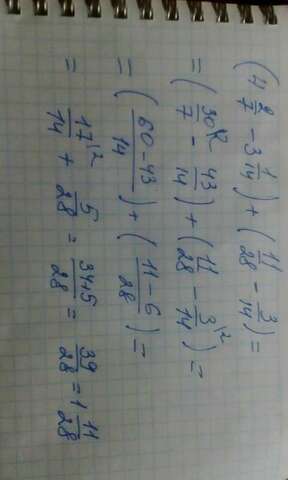 (4 2/7 - 3 1/14) + (11/28 - 3/14) =
= (30/7 \2 - 43/14) + (11/28 - 3/14 \2) =
= (60-43/14) + (11-6/28) =
= 17/14 \2 + 5/28 = 34+5/28 = 39/28 = 1 11/28